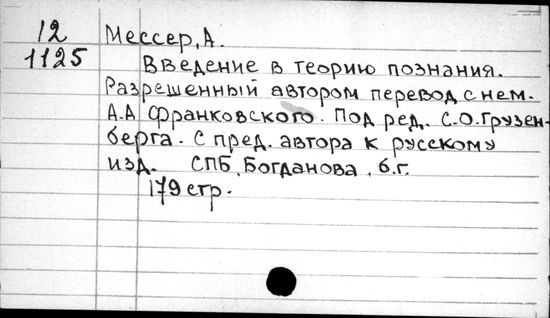 12 Мессер, А.
1125 Введение в теорию познания.
Разрешенный автором перевод с нем.
А.А Франковского. Под ред. С.О.Грузен-
берга. С пред. автора к русскому
изд. СПБ, Богданова, б.г.
179 стр.